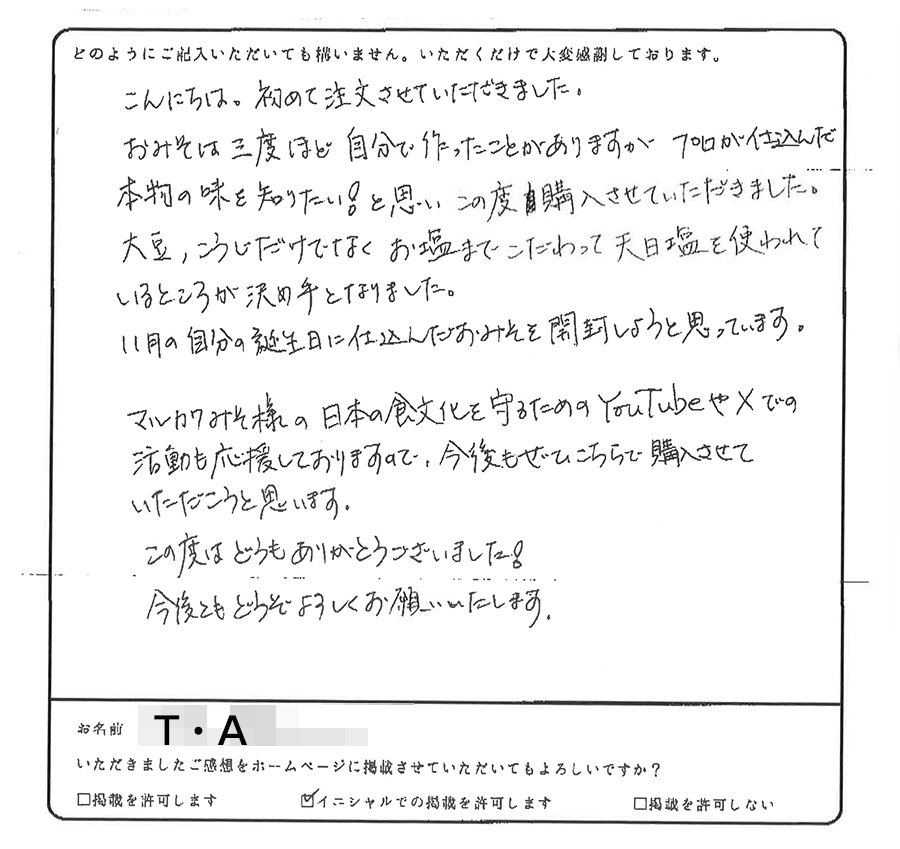 どのようにご記入いただいても構いません。いただくだけで大変感謝しております。
こんにちは。初めて注文させていただきました。
おみそは三度ほど自分で作ったことがありますが プロが仕込んだ
本物の味を知りたい!と思い この度購入させていただきました。
大豆,こうじだけでなく お塩まで こだわって 天日塩を使われて
いるところが決め手となりました。
11月の自分の誕生日に仕込んだおみそを開封しようと思っています。
マルカワみそ様の日本の食文化を守るためのYouTubeやXでの
活動も応援しておりますので、今後もぜひこちらで購入させて
いただこうと思います。
この度はどうもありがとうございました!
今後ともどうぞよろしくお願いいたします。
お名前 T・A
いただきましたご感想をホームページに掲載させていただいてもよろしいですか?
□掲載を許可します ☑イニシャルでの掲載を許可します □掲載を許可しない